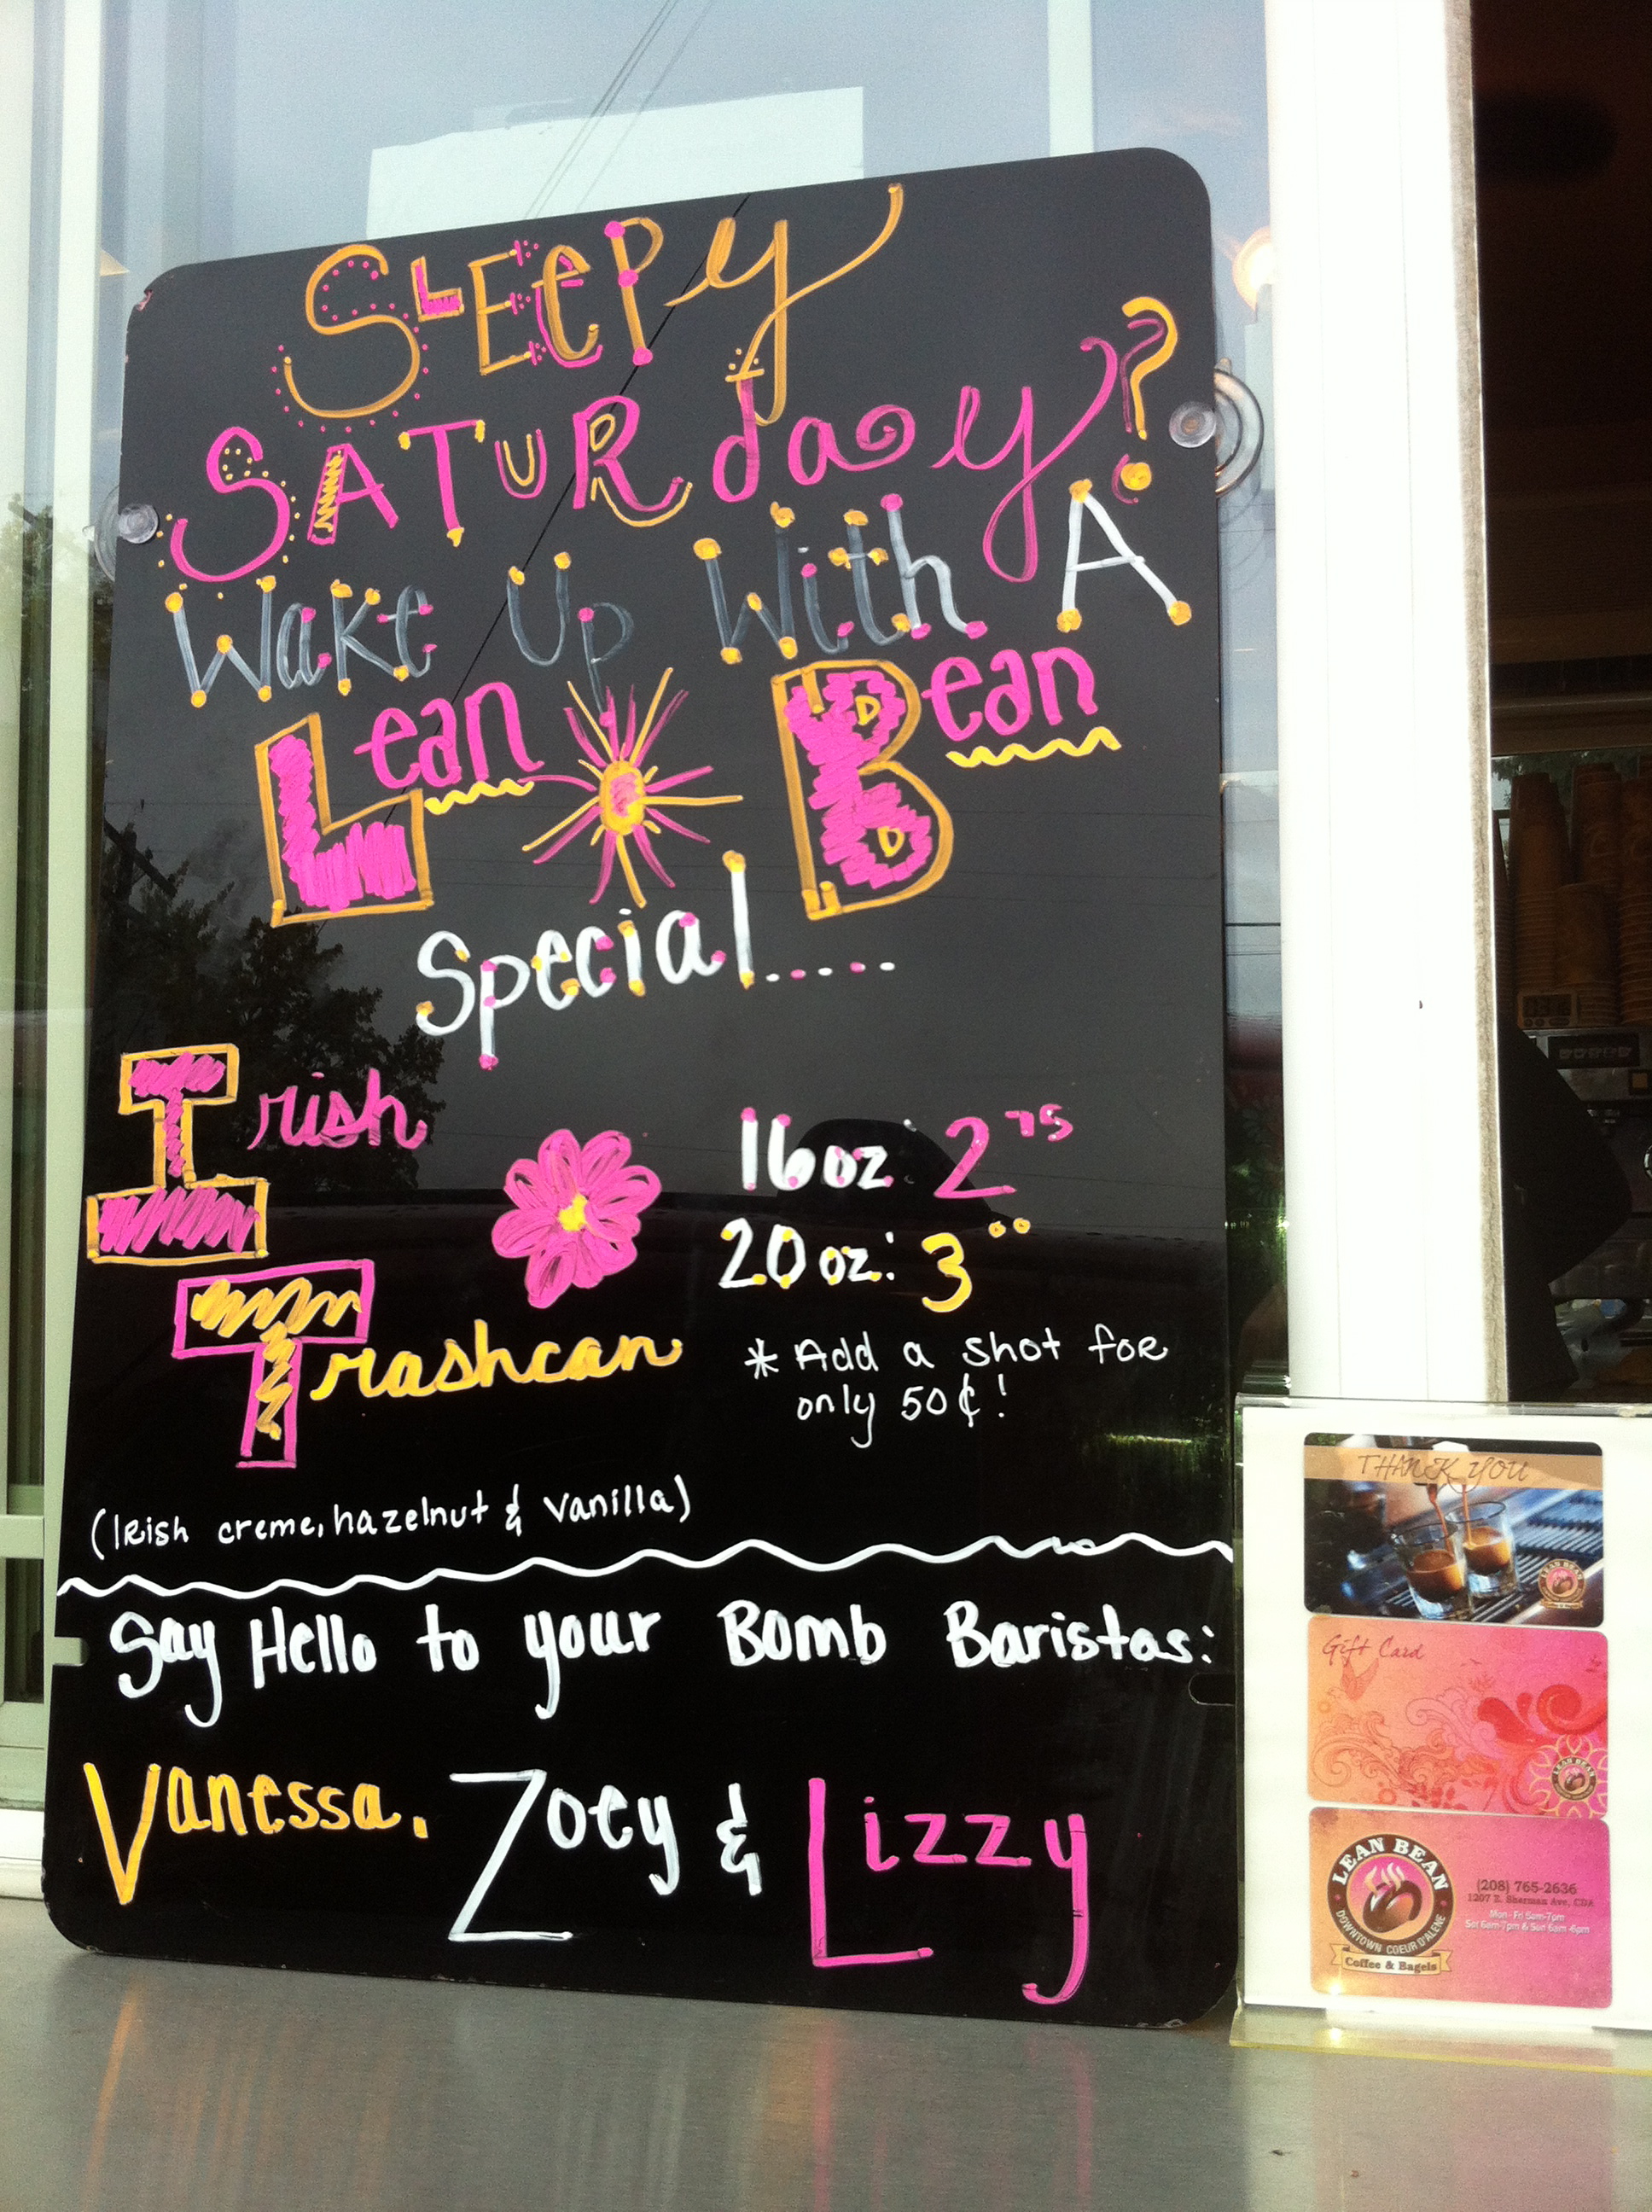 SLEEPY
SATURday?
Wake Up With A
Lean Bean
Special.....
Irish
Trashcan
16oz: 2 75
20oz: 3 00
* Add a shot for
only 50¢!
(Irish creme, hazelnut & vanilla)
Say Hello to your Bomb Baristas:
Vanessa, Zoey & Lizzy
THANK YOU
LEAN BEAN
Gift Card
LEAN BEAN
LEAN BEAN
DOWNTOWN COEUR D'ALENE
Coffee & Bagels
(208) 765-2636
1207 E. Sherman Ave, CDA
Mon-Fri 5am-7pm
Sat 6am-7pm & Sun 6am-6pm